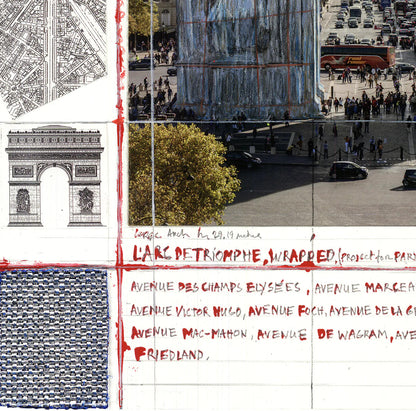 Arch h 29,19 metres
L'ARC DE TRIOMPHE, WRAPPED, (PROJECT for PARI
AVENUE DES CHAMPS ELYSÉES, AVENUE MARCEA
AVENUE VICTOR HUGO, AVENUE FOCH, AVENUE DE LA G
AVENUE MAC-MAHON, AVENUE DE WAGRAM, AVE
FRIEDLAND,